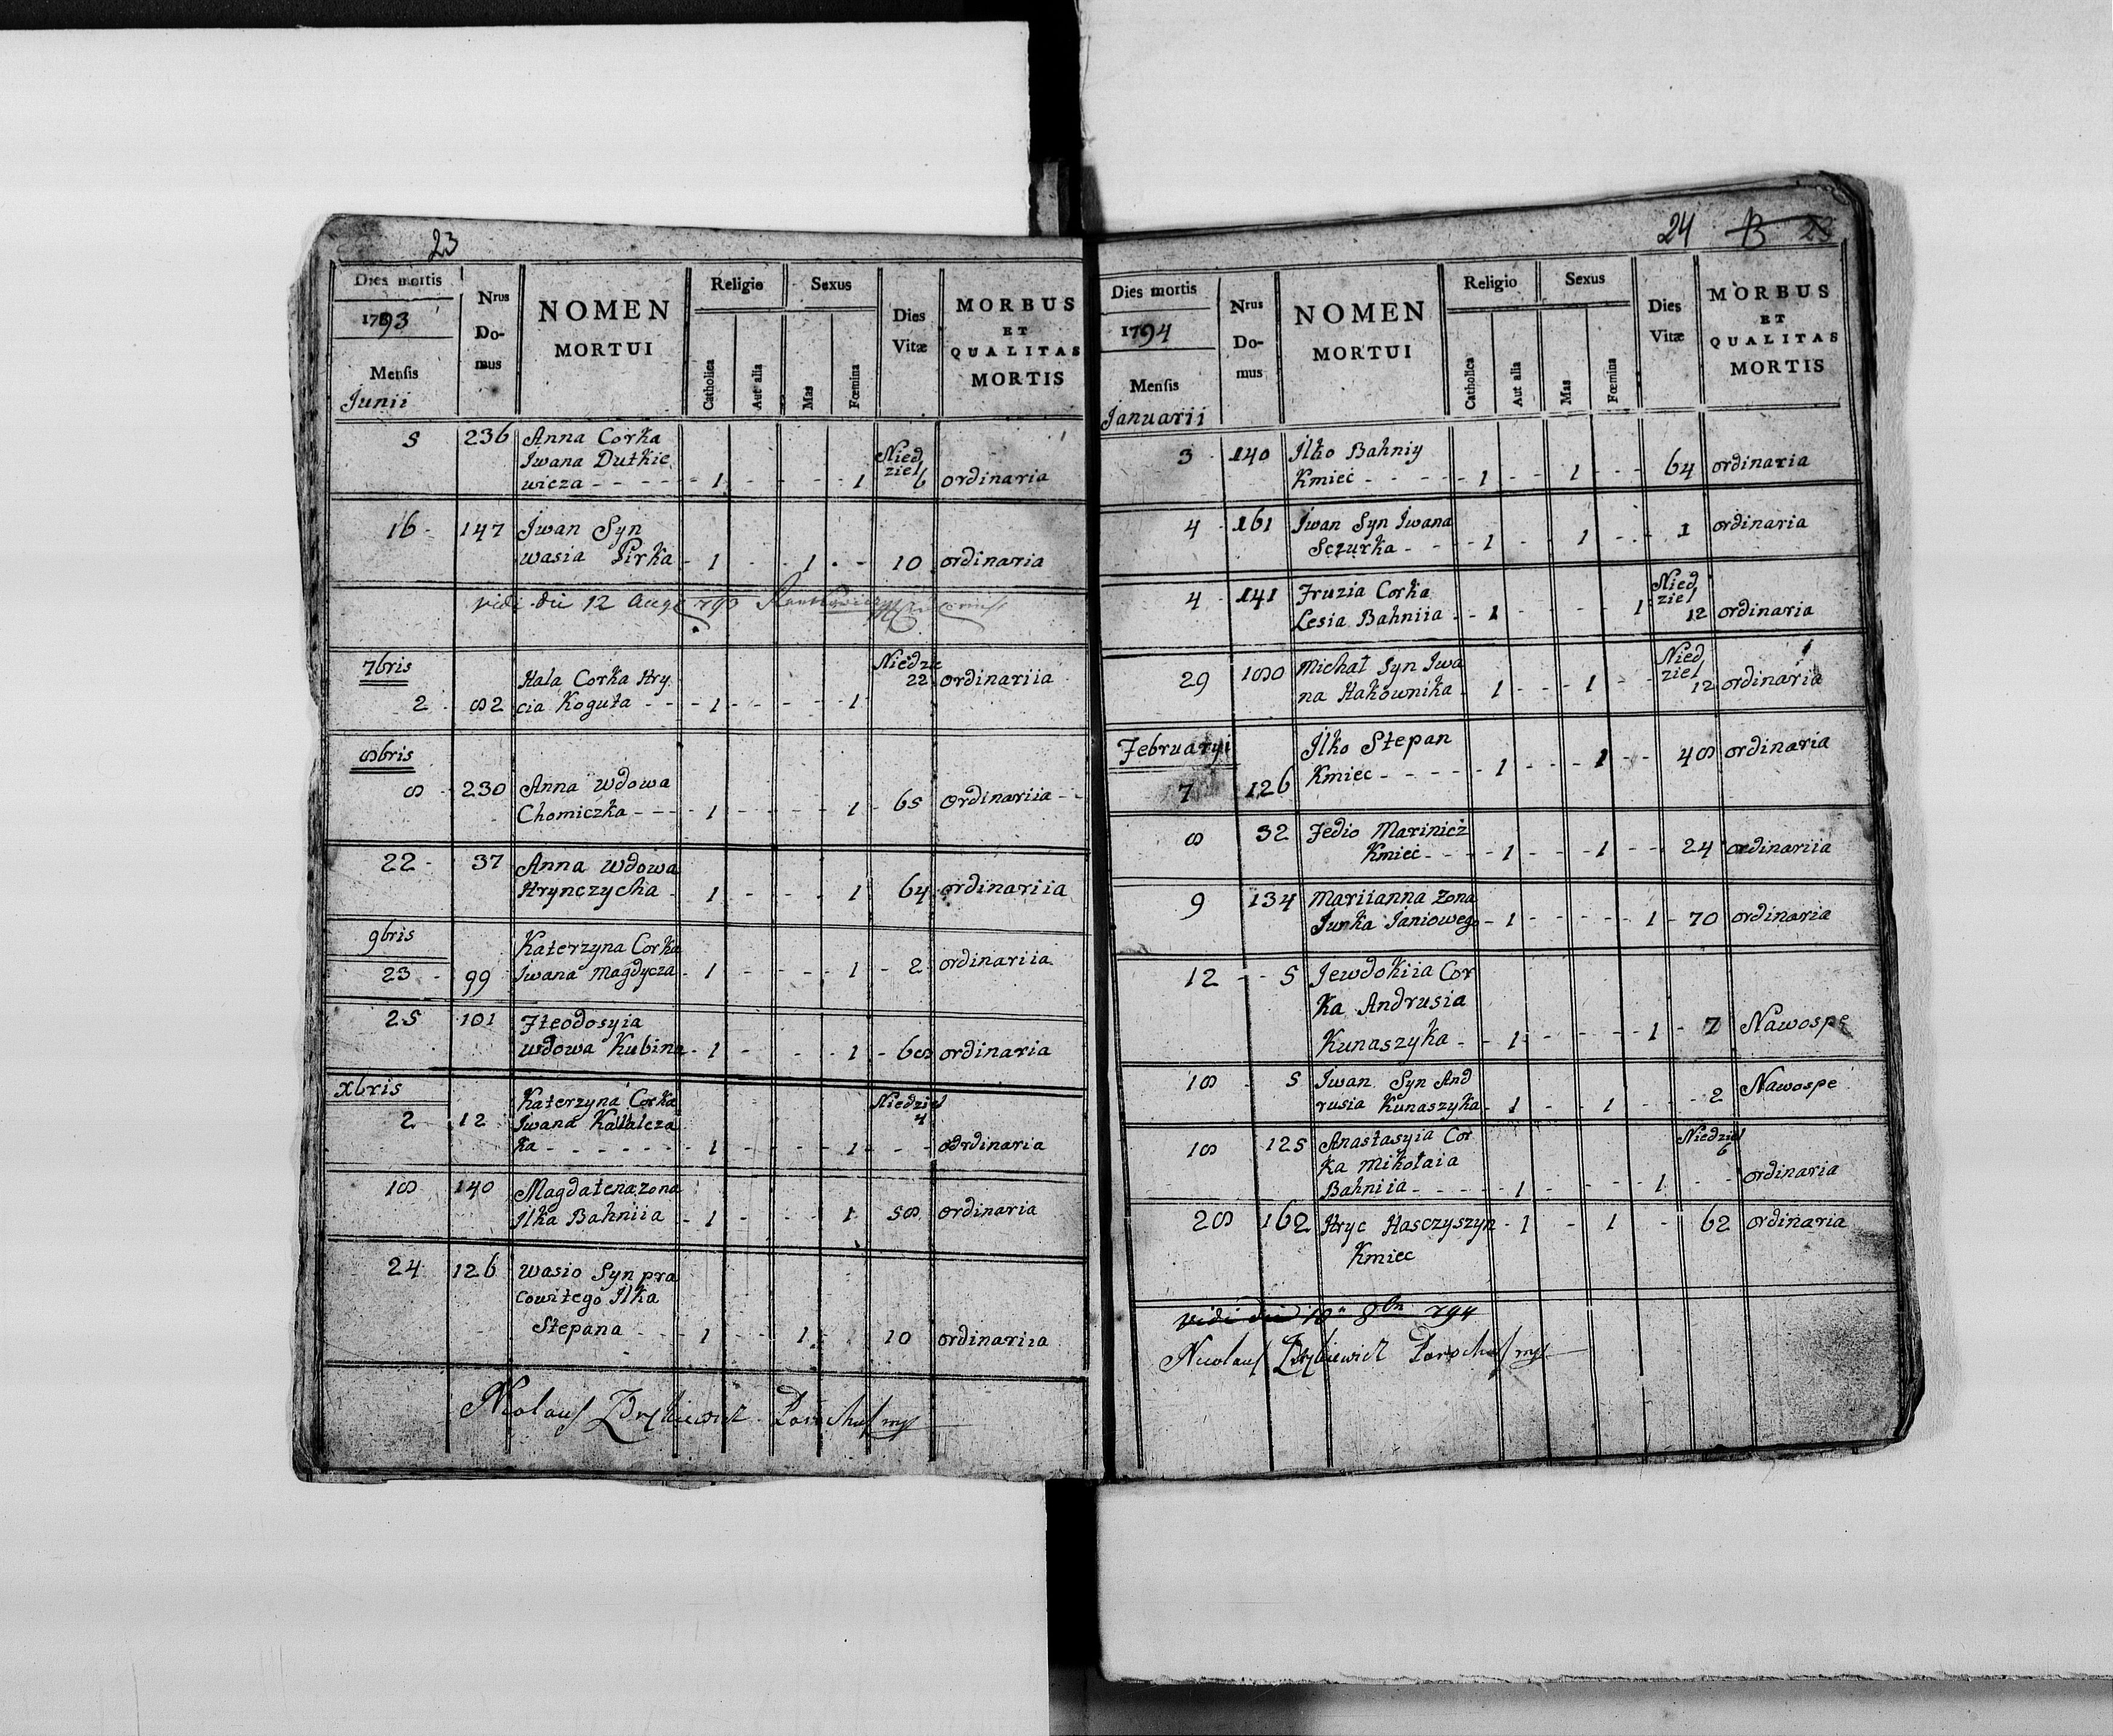 23
Dies mortis
1793
Mensis
Junii
Nrus
Do-
mus
NOMEN
MORTUI
Religio
Catholica
Aut alia
Sexus
Mas
Fœmina
Dies
Vitæ
MORBUS
ET
QUALITAS
MORTIS
5 236 Anna Corka
Iwana Dutkie
wicza - - - - 1 - - - 1 Nied
ziel 6 ordinaria
16 - 147 Iwan Syn
wasia Pirka - 1 - - 1 - - 10 ordinaria
vidi die 12 Aug
7bris
2 82 Hala Corka Hry
cia Koguta - - - 1 - - - 1 Niedzie
22 ordinariia
8bris
8 230 Anna Wdowa
Chomiczka - - - 1 - - - 1 - 65 Ordinariia - -
22 - 37 Anna Wdowa
Hrynczycha - 1 - - - 1 64 ordinariia
9bris
23 - 99 Katerzyna Corka
Iwana Magdycza - 1 - - - 1 - 2 ordinariia
25 101 Fteodosyia
wdowa Kubina - 1 - - - 1 - 68 ordinaria
xbris
2 12 Katerzyna Corka
Iwana Kawalcza
ka - - - - - - 1 - - - 1 - - Niedziel
4 odrdinaria
18 140 Magdalena zona
Ilka Bahniia - 1 - - - 1 58 ordinaria
24 126 Wasio Syn pra
cowitego Ilka
Stepana - - 1 - - 1 10 ordinariia
Nicolaus Parochus mp
24 13 23
Dies mortis
1794
Mensis
Januarii
Nrus
Do-
mus
NOMEN
MORTUI
Religio
Catholica
Aut alia
Sexus
Mas
Fœmina
Dies
Vitæ
MORBUS
ET
QUALITAS
MORTIS
3 - 140 Ilko Bahniy
Kmiec - - - - 1 - - 1 - - - 64 ordinaria
4 - 161 Iwan Syn Iwana
Sczurka - - - 1 - - 1 - - - 1 ordinaria
4 - 141 Fruzia Corka
Lesia Bahniia - - 1 - - - - 1 Nied
ziel
12 ordinaria
29 180 Michał Syn Iwa
na Hakownika - 1 - - - 1 - - Nied
ziel
12 ordinaria
Februaryi
7 126 Ilko Stepan
Kmiec - - - - - 1 - - - 1 - - 48 ordinaria
8 32 Fedio Marinicz
Kmiec - - - - 1 - - - 1 - - 24 ordinariia
9 134 Mariianna zona
Iunka Ianiowego - 1 - - - - - 1 - 70 ordinaria
12 - - 5 Jewdokiia Cor
ka Andrusia
Kunaszyka - - 1 - - - - 1 - 7 Nawospę
18 - 5 Iwan Syn And
rusia Kunaszyka - 1 - - 1 - - - 2 Nawospe
18 125 Anastasyia Cor
ka Mikołaia
Bahniia - - - - - 1 - - - 1 - - Niedziel
6 ordinaria
28 162 Hryc Hasczyszyn - 1 - 1 - 62 ordinaria
Kmiec
vidi die 10 8bri 794
Nicolaus Parochus mp